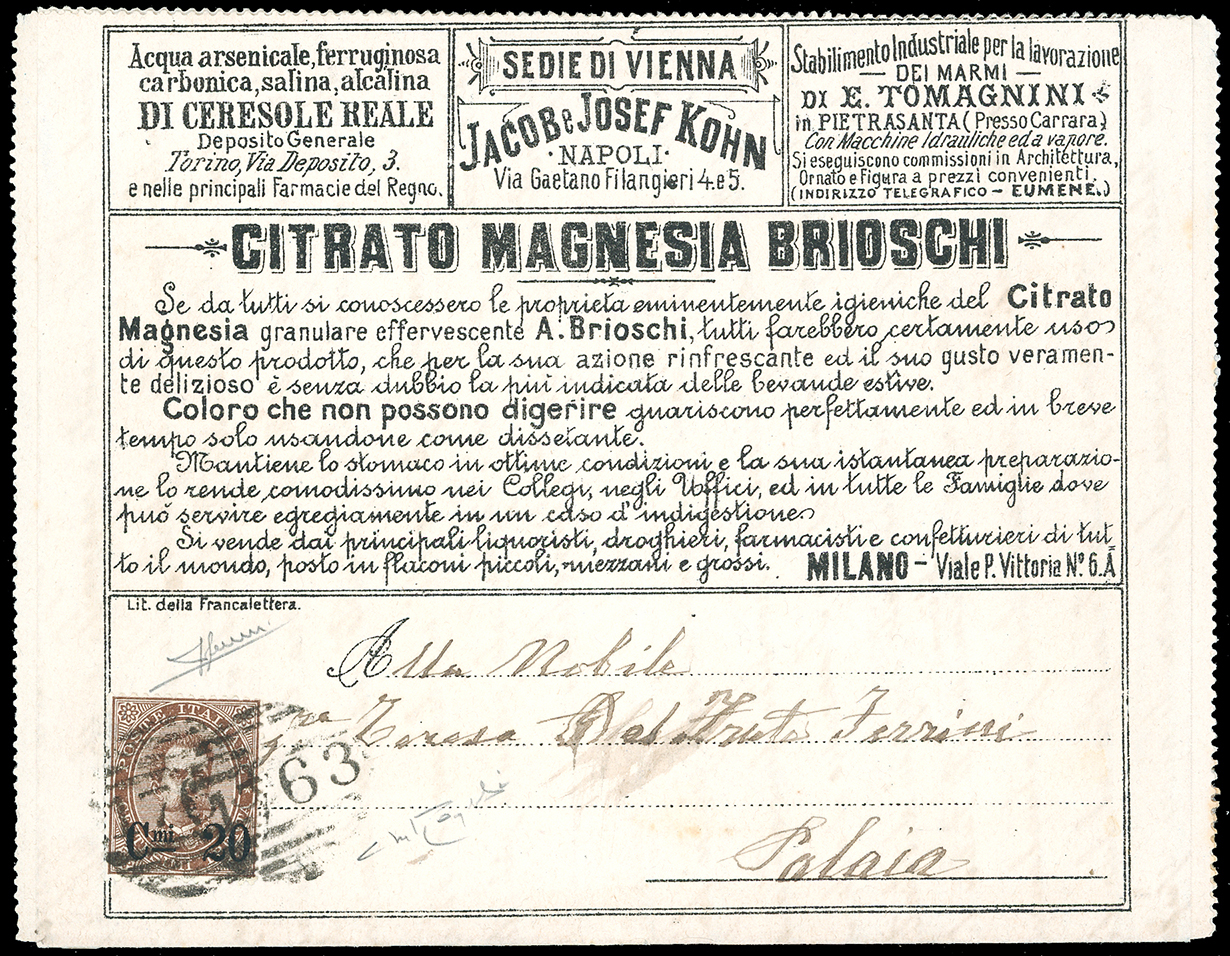 Acqua arsenicale, ferruginosa
carbonica, salina, alcalina
DI CERESOLE REALE
Deposito Generale
Torino, Via Deposito, 3.
e nelle principali Farmacie del Regno.
SEDIE DI VIENNA
JACOB e JOSEF KOHN
· NAPOLI ·
Via Gaetano Filangieri 4. e 5.
Stabilimento Industriale per la lavorazione
— DEI MARMI —
DI E. TOMAGNINI
in PIETRASANTA (Presso Carrara)
Con Macchine Idrauliche ed a vapore.
Si eseguiscono commissioni in Architettura,
Ornato e Figura a prezzi convenienti.
(INDIRIZZO TELEGRAFICO – EUMENE.)
CITRATO MAGNESIA BRIOSCHI
Se da tutti si conoscessero le proprietà eminentemente igieniche del Citrato
Magnesia granulare effervescente A. Brioschi, tutti farebbero certamente uso
di questo prodotto, che per la sua azione rinfrescante ed il suo gusto veramen-
te delizioso è senza dubbio la più indicata delle bevande estive.
Coloro che non possono digerire guariscono perfettamente ed in breve
tempo solo usandone come dissetante.
Mantiene lo stomaco in ottime condizioni e la sua istantanea preparazio-
ne lo rende comodissimo nei Collegi, negli Uffici, ed in tutte le Famiglie dove
può servire egregiamente in un caso d'indigestione
Si vende dai principali liquoristi, droghieri, farmacisti e confetturieri di tut-
to il mondo, posto in flaconi piccoli, mezzani e grossi. MILANO – Viale P. Vittoria Nº 6. A
Lit. della Francalettera.
Alla Nobile
Teresa Dal Ferrini
Palaia
POSTE ITALIANE
Cmi 20
63